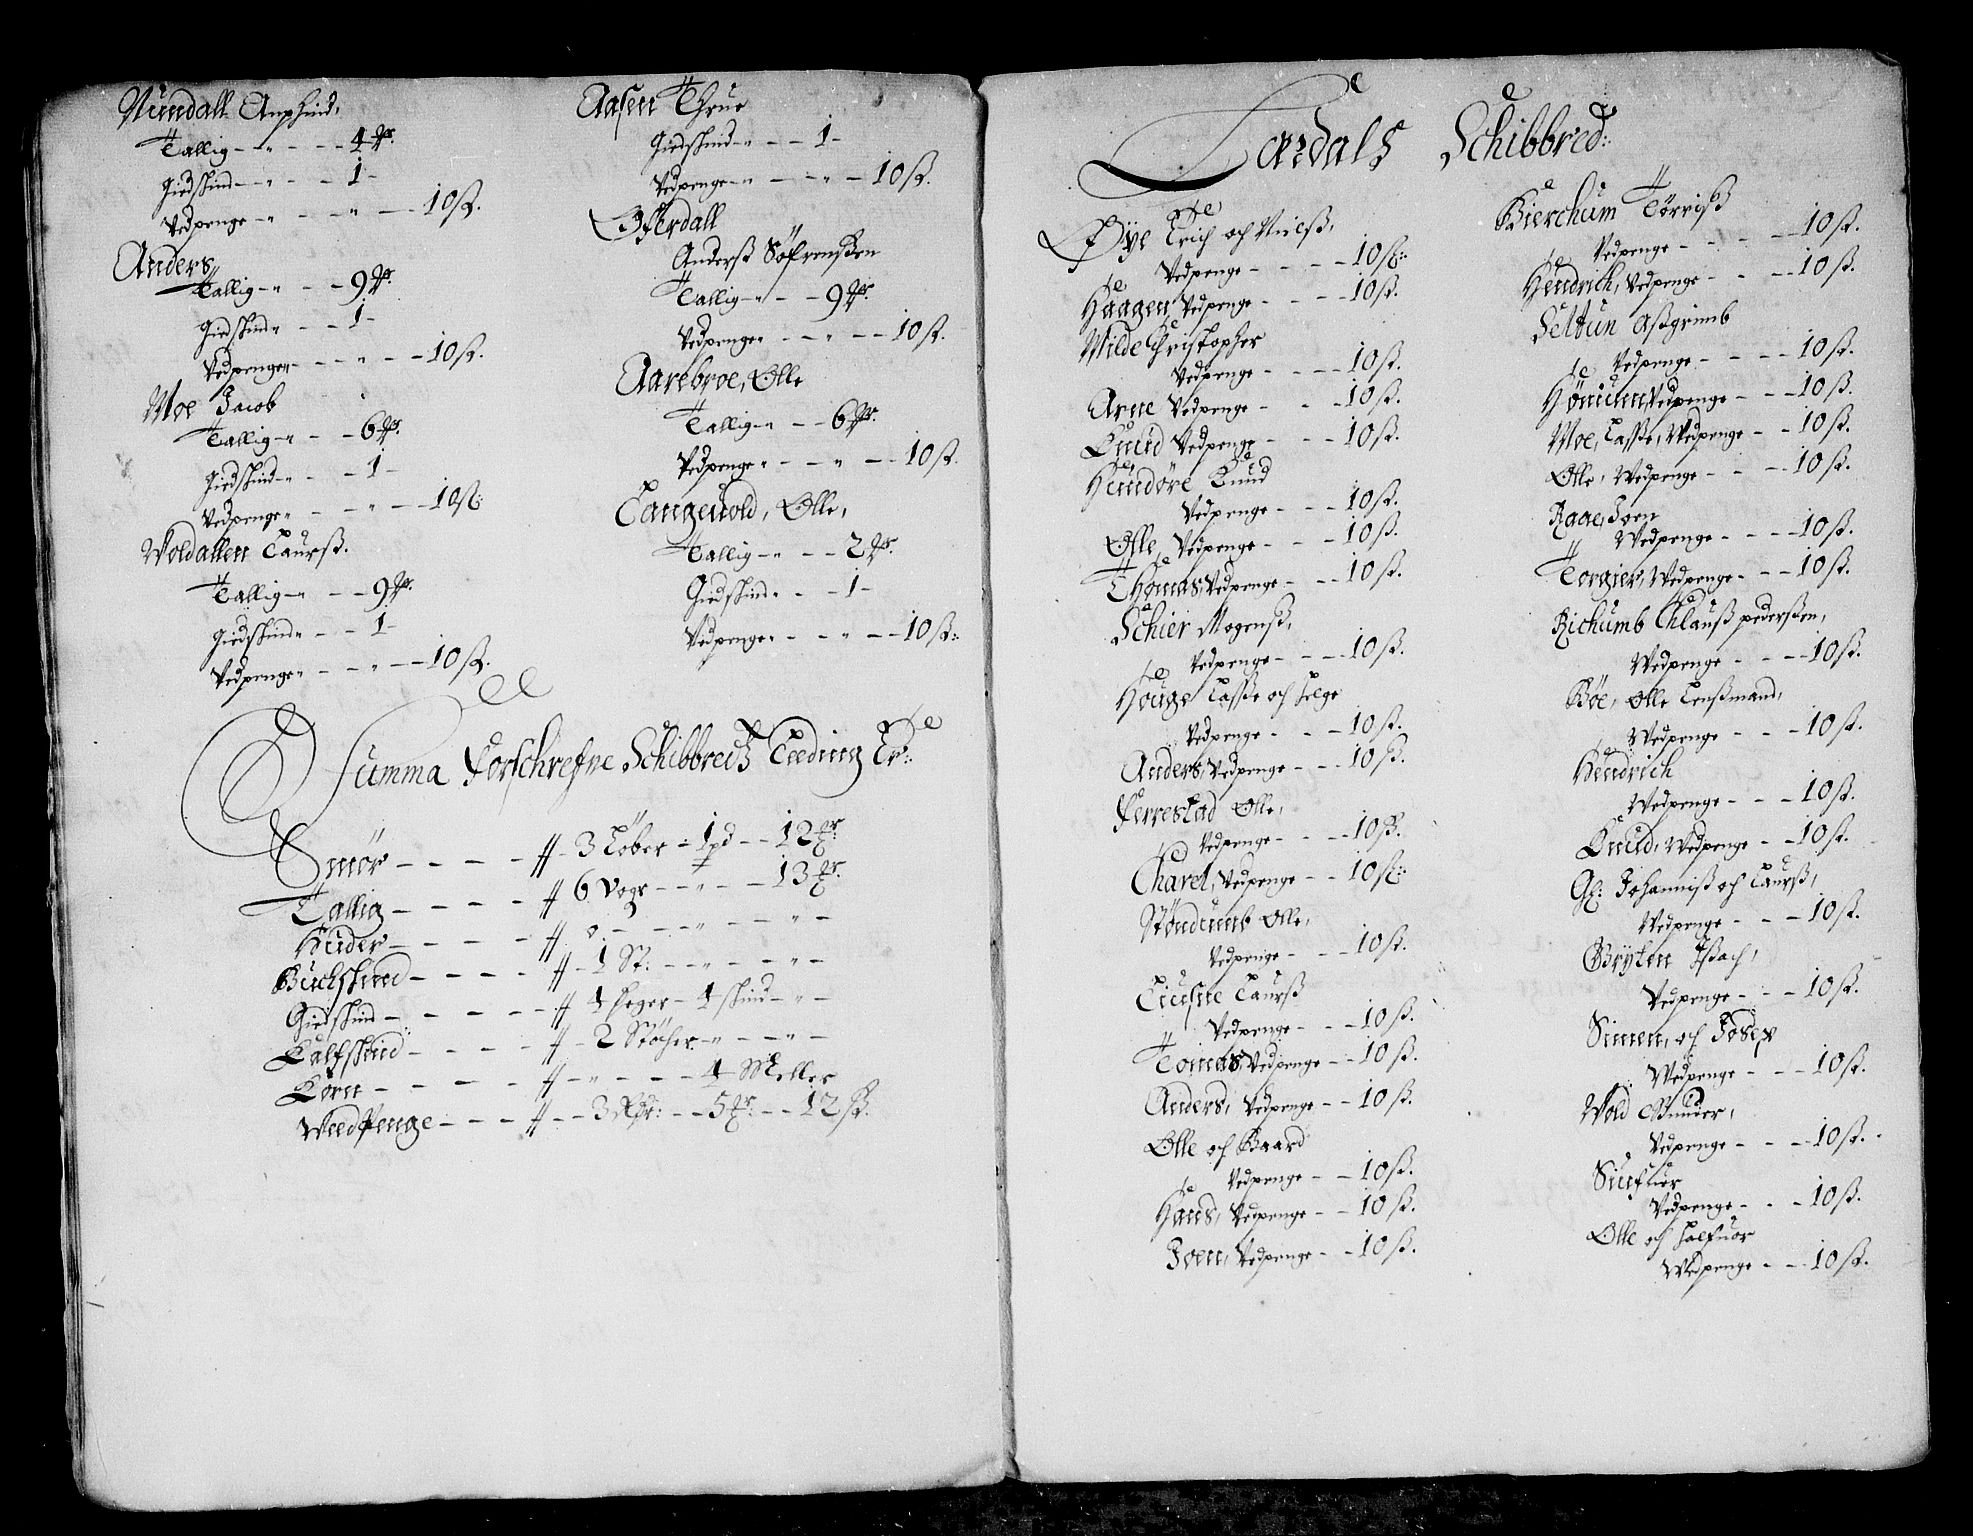 Nundall Anphind,
Tallig - „ - - - 4 ℔r.
Giedskind - „ - - 1 -
Vedpenge - „ - - „ - - 10 ß.
Anders
Tallig - „ - - 9 ℔r.
Giedskind „ - - 1 -
Vedpenge „ - - „ - - 10 ß.
Moe Jacob
Tallig - „ - - 6 ℔r.
Giedskind - „ - - 1 -
Vedpenge „ - - „ - - 10 ß:
Voldallen Laurß.
Tallig - „ - - 9 ℔r.
Giedskind „ - - 1 -
Vedpenge „ - - „ - - 10 ß.
Aasen Thrue
Giedskind - „ - - 1 -
Vedpenge - „ - - „ - 10 ß.
Offerdall
Anderß Söfrenßen
Tallig - „ - - 9 ℔r.
Vedpenge „ - - „ - - 10 ß.
Aarebroe, Olle
Tallig - „ - - 6 ℔r.
Vedpenge „ - - „ - - 10 ß.
Langenold, Olle,
Tallig - „ - - 2 ℔r.
Giedskind „ - - 1 -
Vedpenge „ - - „ - - 10 ß:
Summa Forschrefne Schibbredz Leeding Er:
Smör - - - - # - 3 Löber - 1 pd - - 12 ℔r:
Tallig - - - - # 6 Voger - - „ - - 13 ℔r.
Huder - - - - # o - - „ - - „ -
Buchskind - - - - # - 1 St: - - „ - - „ -
Giedskind - - - - # 4 Heger - 4 skind - „ -
Kalfskind - - - - # - 2 Stöcher - „ - - „ -
Korn - - - - # - „ - - - 4 Meller
Weedpenge - - - # - - 3 Rdr: - - 5 ℔r: - - 12 ß.
Lærdals Schibbred:
Øye Erich och Nielß,
Vedpenge - - - - 10 ß:
Haagen, Vedpenge - - - - 10 ß.
Milde Christopher
Vedpenge - - - - 10 ß.
Arne Vedpenge - - - 10 ß.
Knud Vedpenge - - - 10 ß.
Hundöre Knud
Vedpenge - - - 10 ß.
Olle, Vedpenge - - - 10 ß.
Thomas, Vedpenge - - - 10 ß.
Schier Mogenß,
Vedpenge - - - - 10 ß.
Houge Lasße och Helge
Vedpenge - - - 10 ß.
Anders, Vedpenge - - - 10 ß.
Ferrestad Olle,
Vedpenge - - - - 10 ß.
Charel, Vedpenge - - 10 ß:
Stöndumb Olle,
Vedpenge - - - 10 ß.
Liusne Laurß
Vedpenge - - - 10 ß.
Tomas, Vedpenge - - 10 ß.
Anders, Vedpenge - - 10 ß.
Olle och Baard
Vedpenge - - 10 ß.
Hans, Vedpenge - - 10 ß.
Joen, Vedpenge - - 10 ß.
Bierchum Törriß
Vedpenge - - - - 10 ß.
Hendrich, Vedpenge - - - 10 ß.
Seltun Aßgrimb
Vedpenge - - - - 10 ß.
Hönium, Vedpenge - - - 10 ß.
Moe, Lasße, Wedpenge - - 10 ß.
Olle, Wedpenge - - - - 10 ß.
Raae, Joen
Wedpenge - - - - 10 ß.
Torgier, Wedpenge - - - 10 ß.
Richumb Chlauß pederßen,
Wedpenge - - - - 10 ß.
Böe, Olle Lenßmand,
Wedpenge - - - 10 ß.
Hendrich
Wedpenge - - - 10 ß.
Knud, Wedpenge - - 10 ß.
Gl: Johanniß och Laurß,
Wedpenge - - - 10 ß.
Gryten Ißach,
Vedpenge - - - 10 ß.
Simen, och Josep
Wedpenge - - - 10 ß.
Vold Gunder,
Vedpenge - - - 10 ß.
Siufuer
Vedpenge - - - 10 ß.
Olle och Halfuor
Wedpenge - - 10 ß.